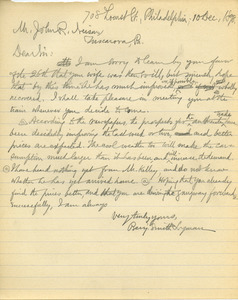 708 Locust St., Philadelphia, 10 Dec.,
Mr. John R. Neison
Tuscarora Pa.
Dear Sir: I am sorry to learn by your favor
that your wife was so ill, but much hope
that by this time she has much improved wholly
recovered. I shall take pleasure in meeting you at the
time whenever you decide to come.
According to the newspapers the prospects for
been decidedly improving the last week or two and better
prices are expected. The cool weather too will make the con-
sumption much larger than it has been and increase demand.
I have had nothing yet from Mr. Kelley, and do not know
whether he has yet arrived home. Hoping that you already
find the prices better and that you are driving the gangway forward
successfully, I am always
Very truly yours,
Benj. Smith Lyman.